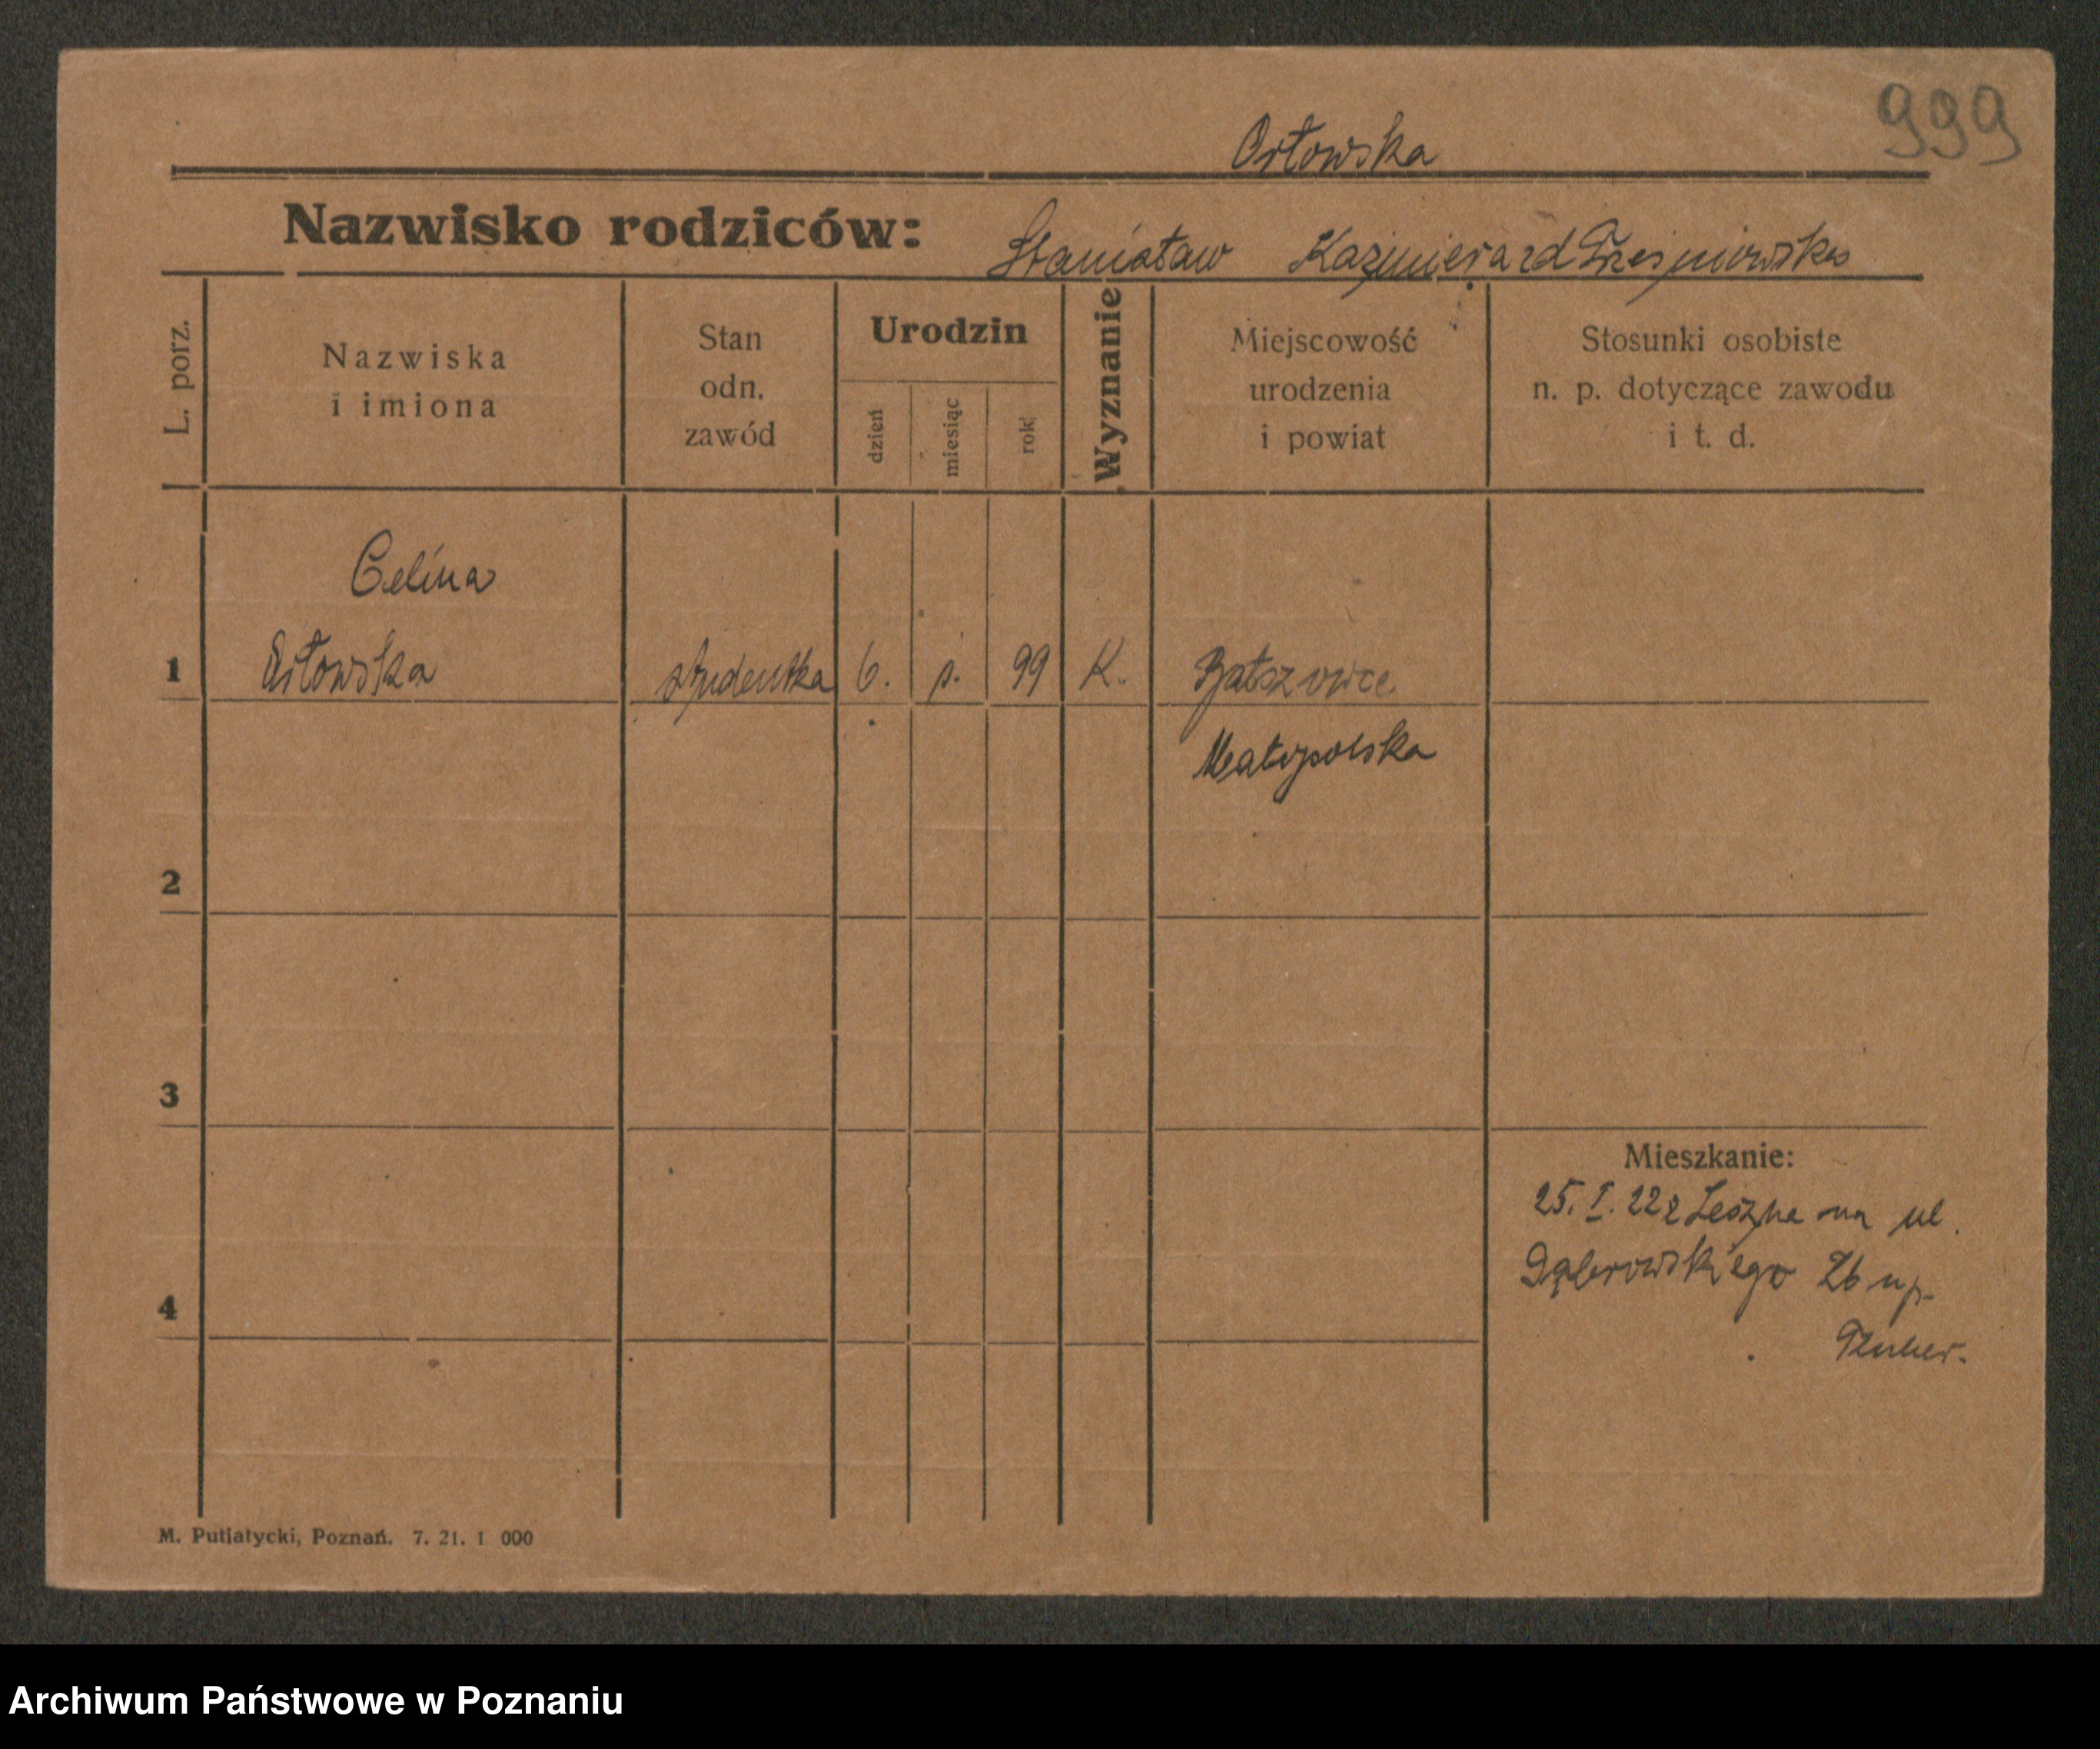 999
Orłowska
Nazwisko rodziców: Stanisław Kazimiera zd Trześniowska
L. porz.
Nazwiska
i imiona
Stan
odn.
zawód
Urodzin
dzień
miesiąc
rok
Wyznanie
Miejscowość
urodzenia
i powiat
Stosunki osobiste
n. p. dotyczące zawodu
i t. d.
Celina
1 Orłowska studentka 6. 99 K. Bałszowce
Małopolska
2
3
4
Mieszkanie:
25. I. 22 z Leszna na ul.
Dąbrowskiego 26 u p.
M. Putiatycki, Poznań. 7. 21. 1 000
Archiwum Państwowe w Poznaniu